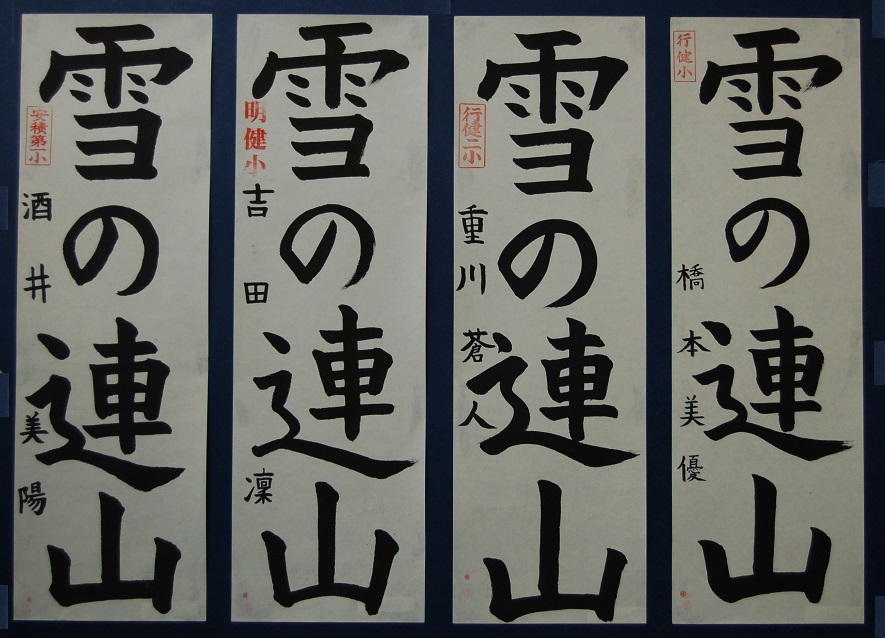 雪の連山
行健小
橋本美優
雪の連山
行健二小
重川蒼人
雪の連山
明健小
吉田凜
雪の連山
安積第一小
酒井美陽